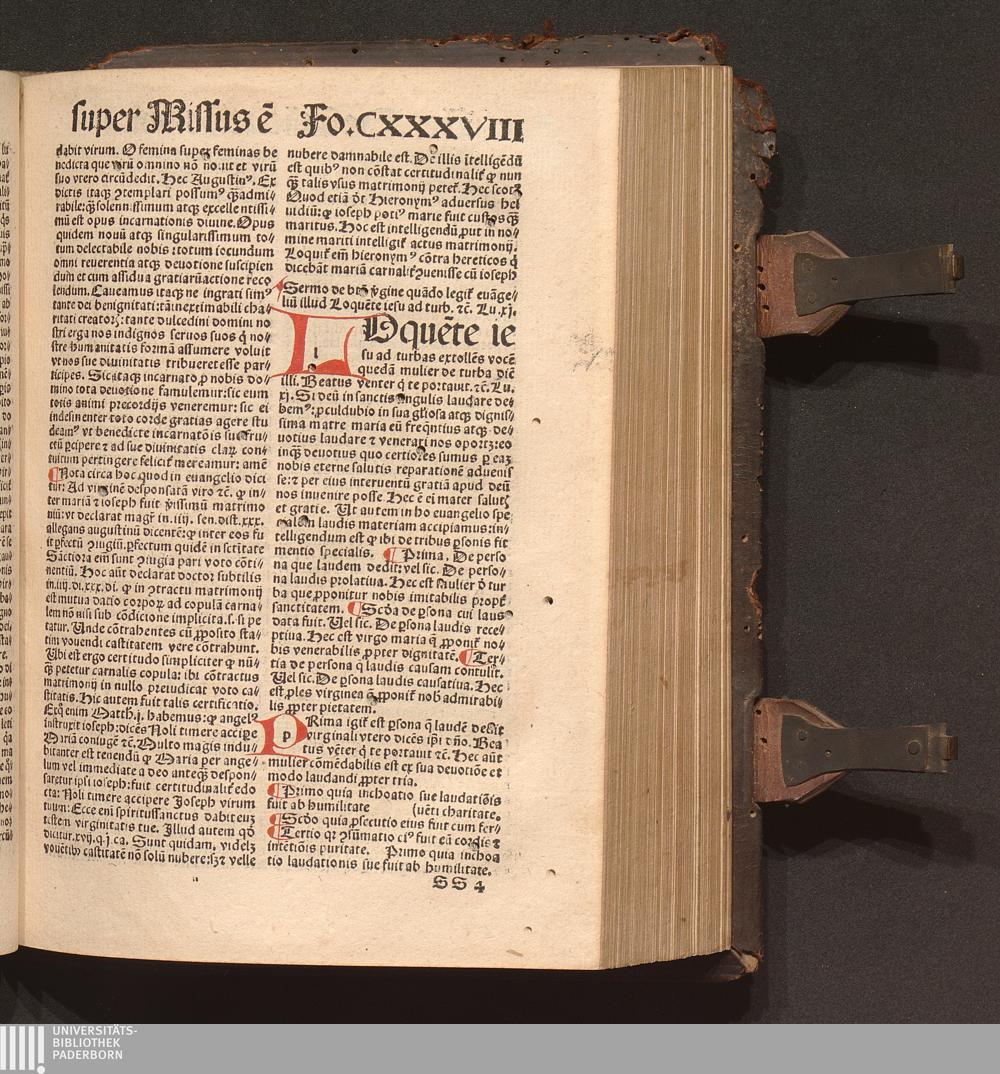 super Missus ē Fo. CXXXVIII
dabit virum. O femina super feminas be
nedicta que virū omnino nō nouit et virū
suo vtero circūdedit. Hec Augustin⁹. Ex
dictis itaq; ꝯtemplari possum⁹ ꝙ̄admi⸗
rabile:ꝙ̄ solennissimum atq; excellentissi⸗
mū est opus incarnationis diuine. Opus
quidem nouū atq; singularissimum to⸗
tum delectabile nobis:totum iocundum
omni reuerentia atq; deuotione suscipien
dum et cum assidua gratiarūactione reco
lendum. Caueamus itaq; ne ingrati sim⁹
tante dei benignitati:tā inextimabili cha⸗
ritati creatoꝝ:tante dulcedini domini no
stri erga nos indignos seruos suos q̇ no⸗
stre humanitatis formā assumere voluit
vt nos sue diuinitatis tribueret esse par⸗
ticipes. Sic itaq; incarnato ꝓ nobis do⸗
mino tota deuotione famulemur:sic eum
totis animi precordijs veneremur:sic ei
indesinenter toto corde gratias agere stu
deam⁹ vt benedicte incarnatōis sue fru⸗
ctū ꝑcipere ⁊ ad sue diuinitatis claꝝ con⸗
tuitum pertingere feliciṫ mereamur: amē
¶Nota circa hoc quod in euangelio dici
tur: Ad virginē desponsatā viro ⁊c̄. ꝙ in⸗
ter mariā ⁊ ioseph fuit v̇issimū matrimo
niū:vt declarat magr̄ in .iiij. sen. dist. xxx.
allegans augustinū dicentē:ꝙ inter eos fu
it ꝑfectū ꝯiugiū. ꝑfectum quidē in sctītate
Sāctiora em̄ sunt ꝯiugia pari voto cōti⸗
nentiū. Hoc aūt declarat doctor subtilis
in .iiij. di. xxx. di. ꝙ in ꝯtractu matrimonij
est mutua datio corpoꝝ ad copulā carna⸗
lem nō nisi sub cōdicione implicita .s. si pe
tatur. Unde cōtrahentes cū ꝓposito sta⸗
tim vouendi castitatem vere cōtrahunt.
Ubi est ergo certitudo simpliciter ꝙ nū⸗
ꝙ̄ petetur carnalis copula: ibi cōtractus
matrimonij in nullo preiudicat voto ca⸗
stitatis. Hic autem fuit talis certificatio.
Exq̇ enim Matth. j. habemus:ꝙ angel⁹
instruxit ioseph:dicēs Noli timere accipere
Mariā coniugē ⁊c̄. Multo magis indu⸗
bitanter est tenendū ꝙ Maria per ange⸗
lum vel immediate a deo anteꝙ̄ despon⸗
saretur ipsi ioseph:fuit certitudinaliṫ edo
cta: Noli timere accipere Joseph virum
tuum: Ecce eni spiritussanctus dabit eū
testem virginitatis tue. Illud autem qd̄
dicitur. xvij. q. j. ca. Sunt quidam. videlꝫ
vouētibꝰ castitatē nō solū nubere:sꝫ ⁊ velle
nubere damnabile est. De illis ītelligēdū
est quib⁹ non cōstat certitudinaliṫ ꝙ nun
ꝙ̄ talis vsus matrimonij peteṫ. Hec scotꝰ
Quod etiā dt̄ Hieronym⁹ aduersus hel
uidiū:ꝙ ioseph poti⁹ marie fuit custos ꝙ̄
maritus. Hoc est intelligendū, put in no⸗
mine mariti intelligiṫ actus matrimonij.
Loquiṫ em̄ hieronym⁹ cōtra hereticos q̇
dicebāt mariā carnaliṫ ꝯuenisse cū ioseph
¶Sermo de bt̄a v̇gine quādo legiṫ euāge⸗
liū illud Loquēte iesu ad turb. ⁊c̄. Lu. xj.
LOquēte ie
su ad turbas extollēs vocē
quedā mulier de turba dix̄
illi. Beatus venter q̇ te portauit. ⁊c̄. Lu.
xj. Si deū in sanctis singulis laudare de⸗
bem⁹:proculdubio in sua gl̄iosa atq; dignis⸗
sima matre maria eū freq̄ntius atq; de⸗
uotius laudare ⁊ venerari nos oportꝫ:eo
inq̄ꝫ deuotius quo certiores sumus ꝑ eaꝫ
nobis eterne salutis reparationē aduenis
se: ⁊ per eius interuentū gratiā apud deū
nos inuenire posse. Hec ē ei mater salutꝭ
et gratie. Ut autem in ho euangelio spe
cialem laudis materiam accipiamus:in⸗
telligendum est ꝙ ibi de tribus ꝑsonis fit
mentio specialis. ¶Prima. De perso
na que laudem dedit:vel sic. De perso⸗
na laudis prolatiua. Hec est mulier d̄ tur
ba que ꝓponitur nobis imitabilis propṫ
sanctitatem. ¶Scd̄a de ꝑsona cui laus
data fuit. Uel sic. De ꝑsona laudis rece⸗
ptiua. Hec est virgo maria q̄ ꝓponiṫ no⸗
bis venerabilis ꝓpter dignitatē. ¶Ter⸗
tia de persona q̄ laudis causam contulit.
Uel sic. De ꝑsona laudis causatiua. Hec
est ꝓles virginea q̄ ꝓponiṫ nob̄ admirabi⸗
lis ꝓpter pietatem.
PRima igiṫ est ꝑsona q̄ laudē dedit
virginali vtero dicēs ip̄i ⁊ dn̄o. Bea
tus vēter q̇ te portauit ⁊c̄. Hec aūt
mulier cōmēdabilis est ex sua deuotiōe et
modo laudandi ꝓpter tria.
¶Primo quia inchoatio sue laudatiōis
fuit ab humilitate (uēti charitate.
¶Scd̄o quia ꝓsecutio eius fuit cum fer⸗
¶Tertio qr̄ ꝯsūmatio ei⁹ fuit cū cordis ⁊
intētiōis puritate. Primo quia inchoa
tio laudationis sue fuit ab humilitate.
SS 4
UNIVERSITÄTS-
BIBLIOTHEK
PADERBORN